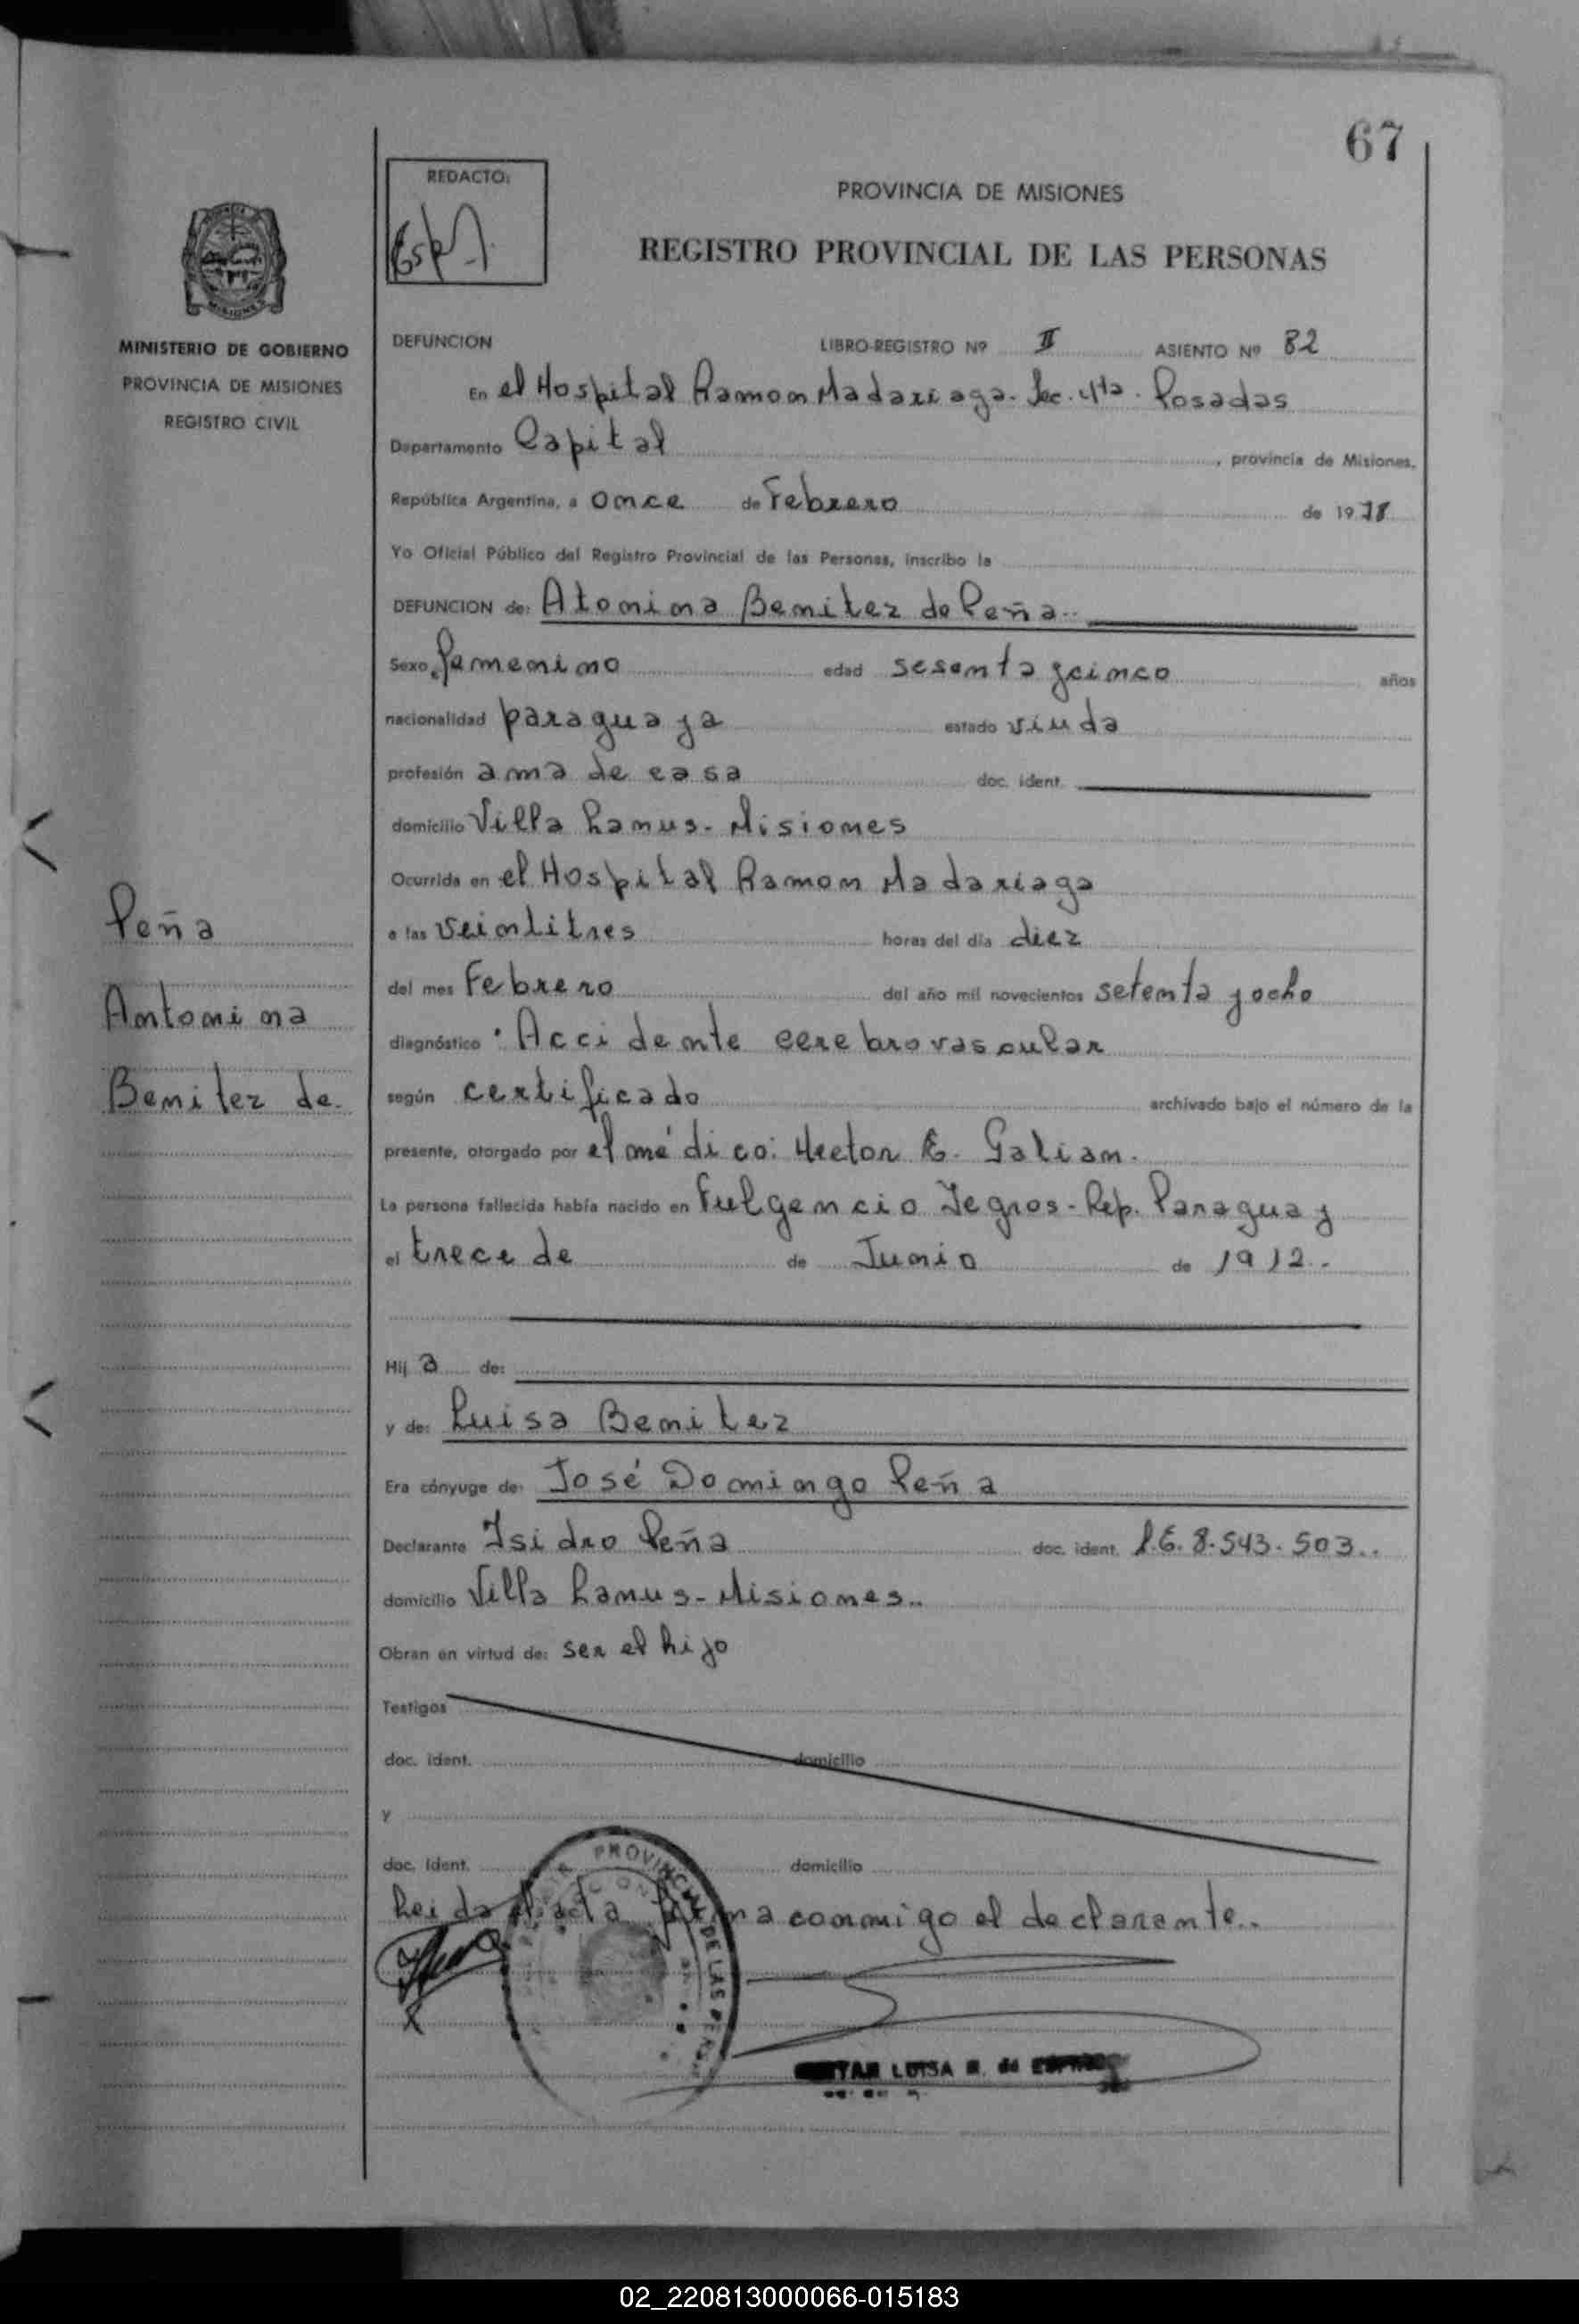 67
REDACTO:
PROVINCIA DE MISIONES
REGISTRO PROVINCIAL DE LAS PERSONAS
MINISTERIO DE GOBIERNO
PROVINCIA DE MISIONES
REGISTRO CIVIL
DEFUNCION LIBRO-REGISTRO Nº II ASIENTO Nº 82
En el Hospital Ramon Madariaga. Sec. 4ta. Posadas
Departamento Capital, provincia de Misiones,
República Argentina, a once de Febrero de 1978
Yo Oficial Público del Registro Provincial de las Personas, inscribo la
DEFUNCION de: Atonina Benitez de Peña..
Sexo femenino edad sesenta y cinco años
nacionalidad paraguaya estado viuda
profesión ama de casa doc. ident.
domicilio Villa Lanus - Misiones
Ocurrida en el Hospital Ramon Madariaga
a las veintitres horas del día diez
del mes Febrero del año mil novecientos setenta y ocho
diagnóstico: Accidente cerebro vascular
según certificado archivado bajo el número de la
presente, otorgado por el médico: Hector E. Galian.
La persona fallecida había nacido en Fulgencio Yegros - Rep. Paraguay
el trece de de Junio de 1912.
Hij a de:
y de: Luisa Benitez
Era cónyuge de: José Domingo Peña
Declarante Isidro Peña doc. ident. L.E. 8.543.503..
domicilio Villa Lanus - Misiones..
Obran en virtud de: ser el hijo
Testigos
doc. ident. domicilio
y
doc. ident. domicilio
Leida el acta firma conmigo el declarante..
Peña
Antonina
Benitez de.
PROVINCIAL DE LAS
LUISA
02_220813000066-015183